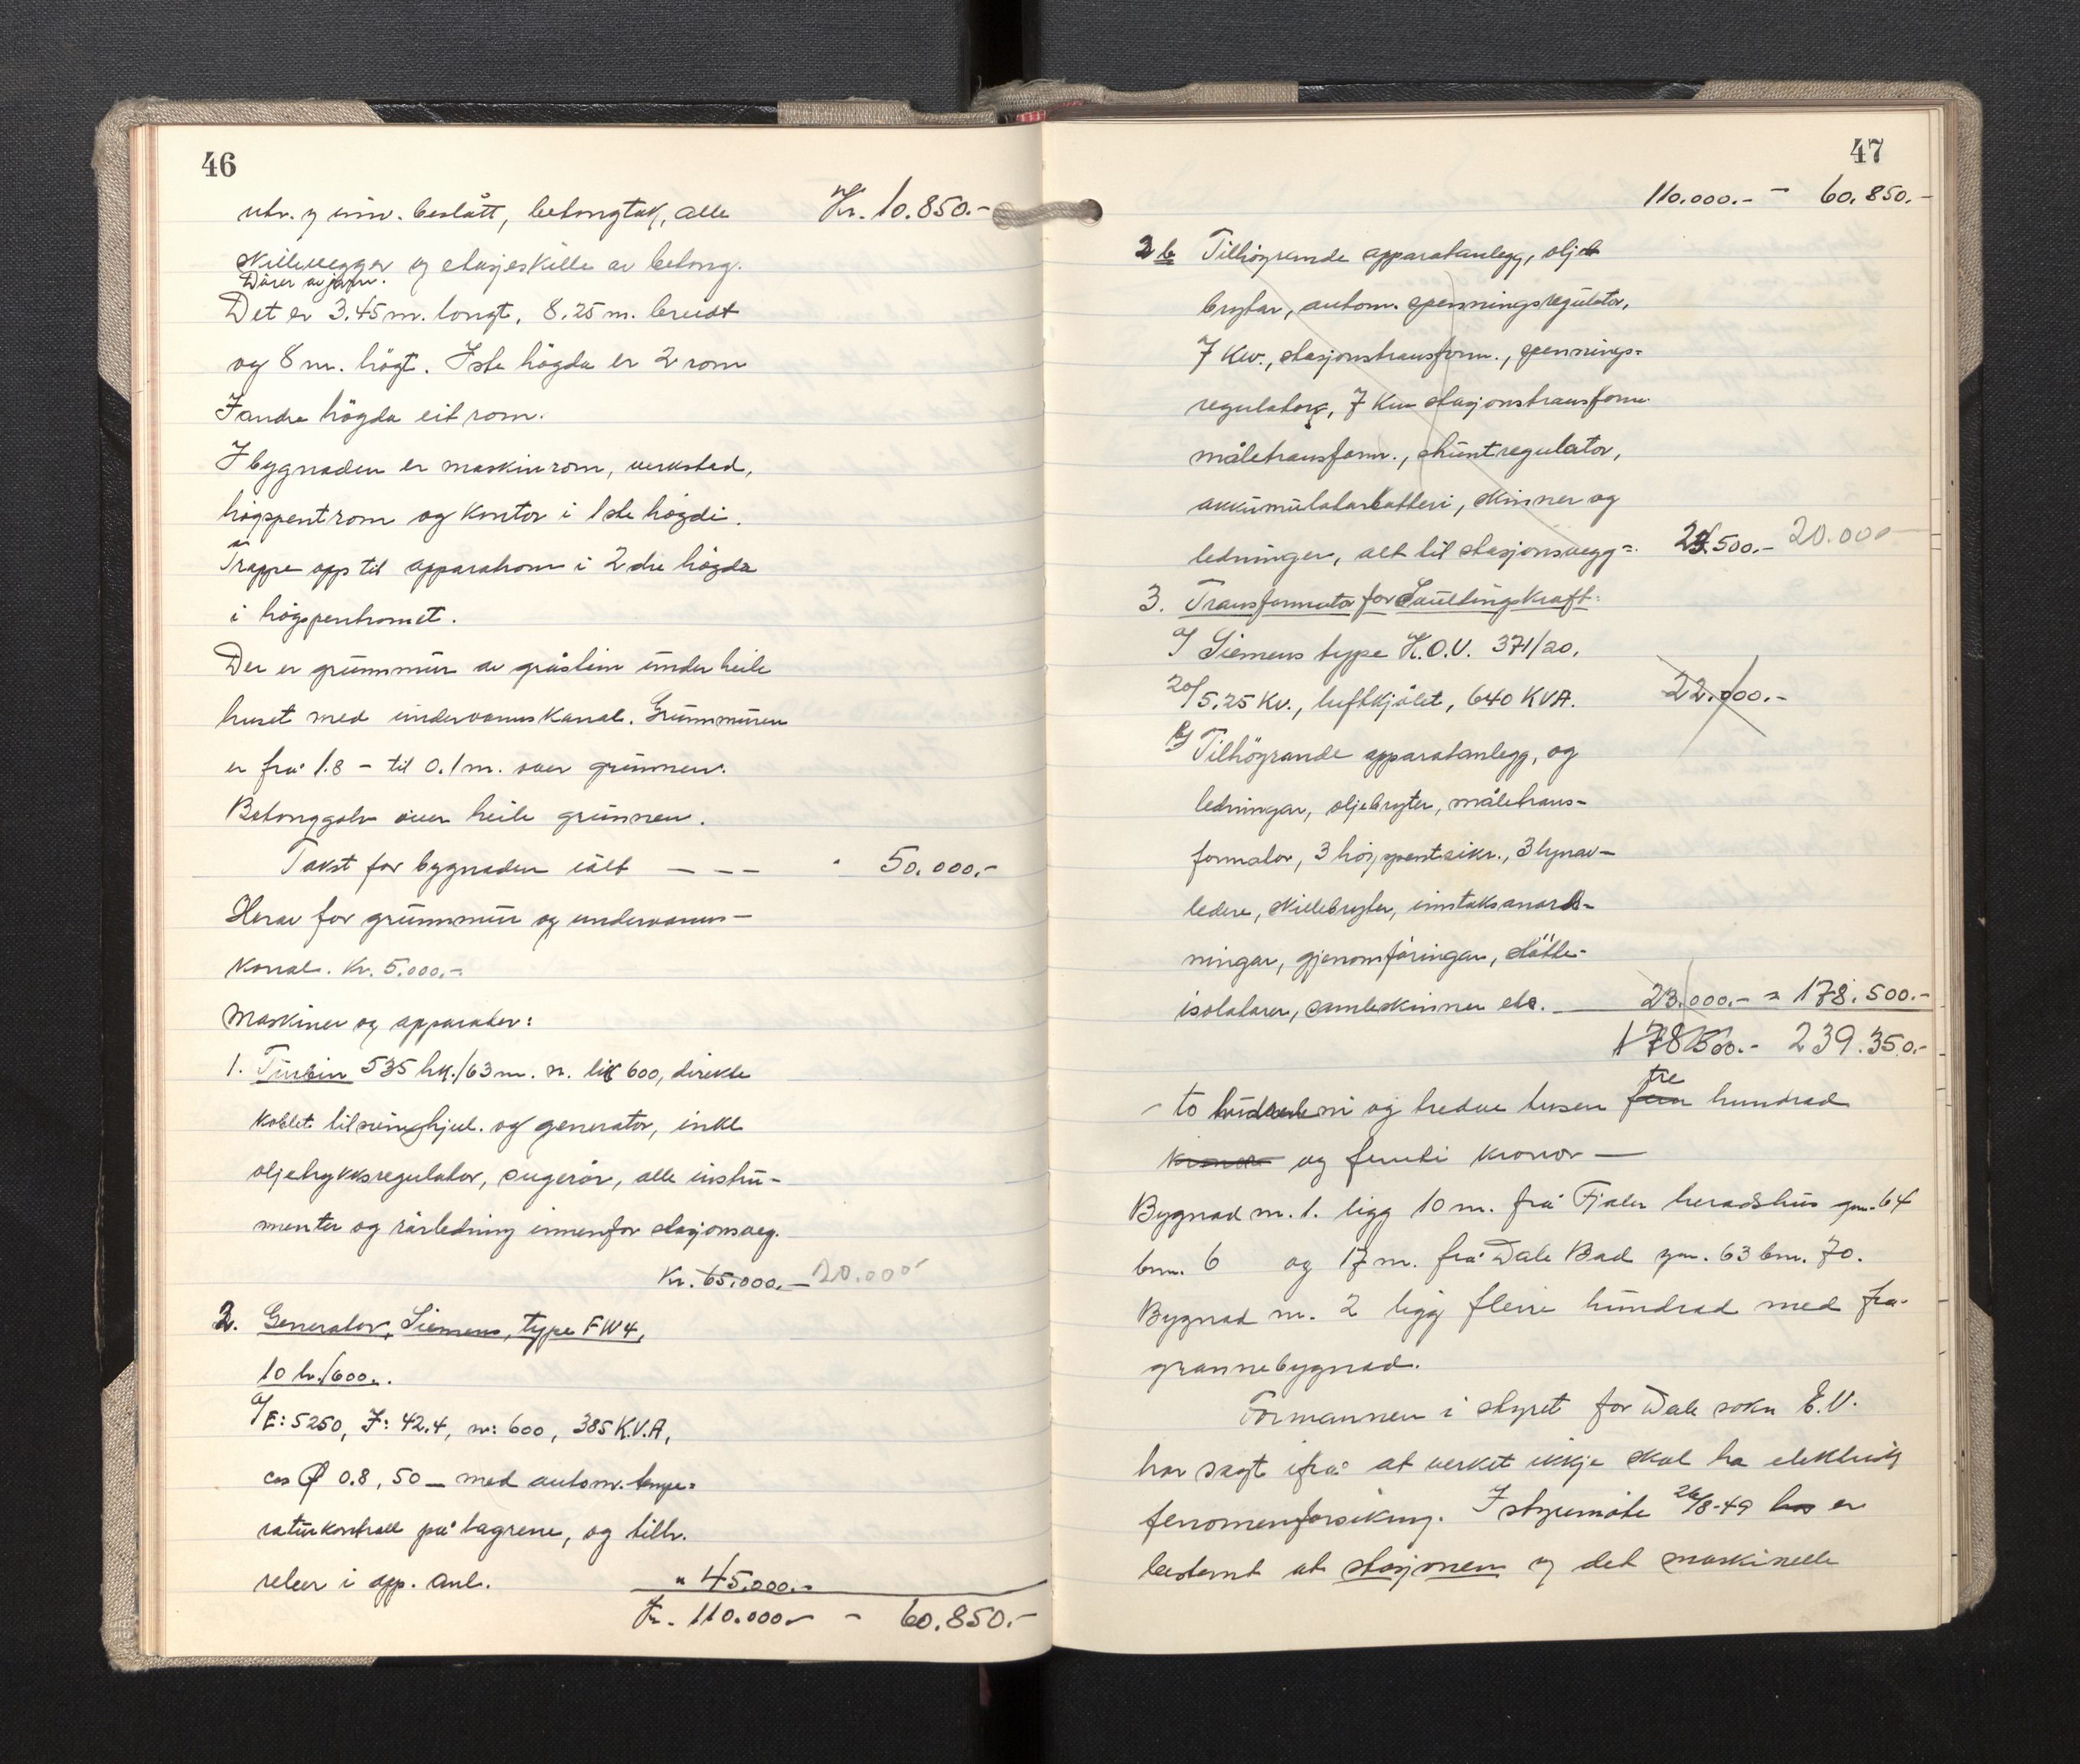 46
utv. og innv. beslått, betongtak, alle Kr. 10.850.-
skillevegger og etasjeskille av betong.
Dörer av jarn.
Det er 3.45 m. longt, 8.25 m. breidt
og 8 m. högt. I ste högda er 2 rom
I andre högda eit rom.
I bygnaden er maskinrom, verkstad,
högspentrom og kontor i 1ste högdi.
Trapp opp til apparatrom i 2dre högda
i högspentromet.
Der er grunnmur av gråstein under heile
huset med undervannskanal. Grunnmuren
er frå 1.8 - til 0.1 m. over grunnen.
Betonggolv over heile grunnen.
Takst for bygnaden ialt - - - " 50.000.-
Herav for grunnmur og undervanns-
kanal. Kr. 5.000.-
Maskiner og apparater:
1. Turbin 535 hk./63 m. n. lik 600, direkte
koblet til svinghjul. og generator, inkl
oljetrykksregulator, sugerör, alle instru-
menter og rörledning innenfor stasjonsveg.
Kr. 65.000.- 20.000
2. Generator, Siemens, type FW4,
10 hr./600.
a/ E: 5250, I: 42.4, n: 600, 385 K.V.A,
cos φ 0.8, 50 - med autom. tempe=
raturkontroll på lagrene, og tilh.
releer i app. anl. " 45.000.-
Kr. 110.000.- - 60.850.-
47
110.000.- - 60.850.-
2 b Tilhögrende apparatanlegg, olje
brytar, autom. spenningsregulator,
7 Kw., stasjonstransform., spennings=
regulator, 7 Kw stasjonstransform.
måletransform., shuntregulator,
akkumulatorbatteri, skinner og
ledninger, alt til stasjonsvegg=. .500.- 20.000
3. Transformator for Sauldingskraft:
a/ Siemens type K.O.V. 371/20,
20/5.25 Kv., luftkjölet, 640 KVA. 22.000.-
b/ Tilhögrande apparatanlegg, og
ledningar, oljebryter, måletrans-
formator, 3 högspentsikr., 3 lynav-
ledere, skillebryter, inntaksanord-
ningar, gjenomföringar, stötte-
isolatorer, samleskinner etc. 23.000.- = 178.500.-
178500.- 239.350.-
- to hundrad ni og tredve tusen fem tre hundrad
kronor og femti kronor -
Bygnad nr. 1. ligg 10 m. frå Fjaler heradshus gnr. 64
bnr. 6 og 17 m. frå Dale Bad gnr. 63 bnr. 70.
Bygnad nr. 2 ligg fleire hundrad med frå
grannebygnad.
Formannen i styret for Dale sokn E.V.
har sagt ifrå at verket ikkje skal ha elektrisk
fenomenforsikring. I styremöte 26/8-49 hos er
bestemt at stasjonen og det maskinelle